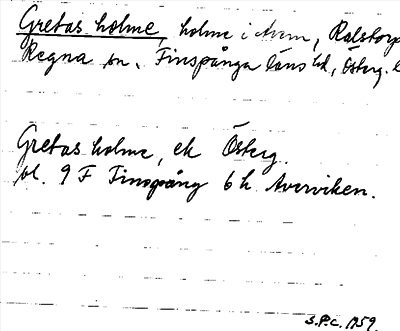 Gretas holme, holme i Avern, Ralstorp
Regna sn, Finspånga läns hd, Österg. l
Gretas holme, ek Österg.
bl. 9 F Finspång 6 h Averviken.
S.P.C. 1959.